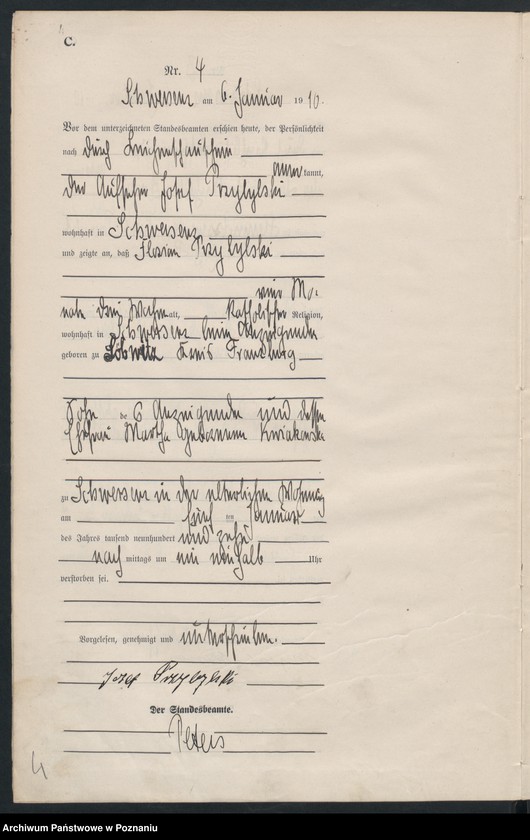 C.
Nr. 4
Schwersenz am 6. Januar 1910.
Vor dem unterzeichneten Standesbeamten erschien heute, der Persönlichkeit
nach durch Leichenschauschein
anerkannt,
der Aufseher Josef Przylylski
wohnhaft in Schwersenz
und zeigte an, daß Florian Przylylski
vier Mo-
nate drei Wochen alt, katholischer Religion,
wohnhaft in Schwersenz beim Anzeigenden
geboren zu Kreis Franzburg
Sohn des Anzeigenden und dessen
Ehefrau Martha geborenen Kwiakowska
zu Schwersenz in der elterlichen Wohnung
am fünf ten Januar
des Jahres tausend neunhundert und zehn
nach mittags um ein einhalb Uhr
verstorben sei.
Vorgelesen, genehmigt und unterschrieben.
Josef Przylylski
Der Standesbeamte.
Peters
4
Archiwum Państwowe w Poznaniu